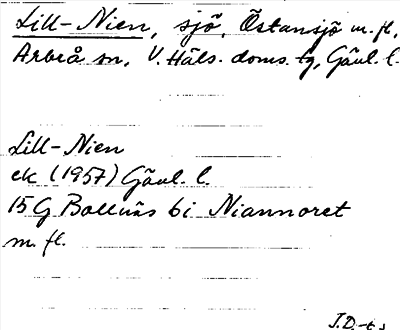 Lill-Nien, sjö, Östansjö m. fl.
Arbrå sn, V. Häls. doms. tg, Gävl. l.
Lill-Nien
ek (1957) Gävl. l.
15 G Bollnäs 6i Niannoret
m. fl.